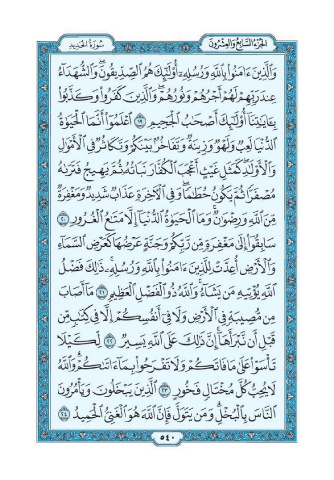 الجزء السابع والعشرون سورة الحديد
وَالَّذِينَ ءَامَنُوا۟ بِاللَّهِ وَرُسُلِهِۦٓ أُو۟لَٰٓئِكَ هُمُ الصِّدِّيقُونَ ۖ وَالشُّهَدَآءُ
عِندَ رَبِّهِمْ لَهُمْ أَجْرُهُمْ وَنُورُهُمْ ۖ وَالَّذِينَ كَفَرُوا۟ وَكَذَّبُوا۟
بِـَٔايَٰتِنَآ أُو۟لَٰٓئِكَ أَصْحَٰبُ الْجَحِيمِ ١٩ اعْلَمُوٓا۟ أَنَّمَا الْحَيَوٰةُ
الدُّنْيَا لَعِبٌ وَلَهْوٌ وَزِينَةٌ وَتَفَاخُرٌۢ بَيْنَكُمْ وَتَكَاثُرٌ فِى الْأَمْوَٰلِ
وَالْأَوْلَٰدِ ۖ كَمَثَلِ غَيْثٍ أَعْجَبَ الْكُفَّارَ نَبَاتُهُۥ ثُمَّ يَهِيجُ فَتَرَىٰهُ
مُصْفَرًّا ثُمَّ يَكُونُ حُطَٰمًا ۖ وَفِى الْءَاخِرَةِ عَذَابٌ شَدِيدٌ وَمَغْفِرَةٌ
مِّنَ اللَّهِ وَرِضْوَٰنٌ ۚ وَمَا الْحَيَوٰةُ الدُّنْيَآ إِلَّا مَتَٰعُ الْغُرُورِ ٢٠
سَابِقُوٓا۟ إِلَىٰ مَغْفِرَةٍ مِّن رَّبِّكُمْ وَجَنَّةٍ عَرْضُهَا كَعَرْضِ السَّمَآءِ
وَالْأَرْضِ أُعِدَّتْ لِلَّذِينَ ءَامَنُوا۟ بِاللَّهِ وَرُسُلِهِۦ ۚ ذَٰلِكَ فَضْلُ
اللَّهِ يُؤْتِيهِ مَن يَشَآءُ ۚ وَاللَّهُ ذُو الْفَضْلِ الْعَظِيمِ ٢١ مَآ أَصَابَ
مِن مُّصِيبَةٍ فِى الْأَرْضِ وَلَا فِىٓ أَنفُسِكُمْ إِلَّا فِى كِتَٰبٍ مِّن
قَبْلِ أَن نَّبْرَأَهَآ ۚ إِنَّ ذَٰلِكَ عَلَى اللَّهِ يَسِيرٌ ٢٢ لِّكَيْلَا
تَأْسَوْا۟ عَلَىٰ مَا فَاتَكُمْ وَلَا تَفْرَحُوا۟ بِمَآ ءَاتَىٰكُمْ ۗ وَاللَّهُ
لَا يُحِبُّ كُلَّ مُخْتَالٍ فَخُورٍ ٢٣ الَّذِينَ يَبْخَلُونَ وَيَأْمُرُونَ
النَّاسَ بِالْبُخْلِ ۗ وَمَن يَتَوَلَّ فَإِنَّ اللَّهَ هُوَ الْغَنِىُّ الْحَمِيدُ ٢٤
٥٤٠